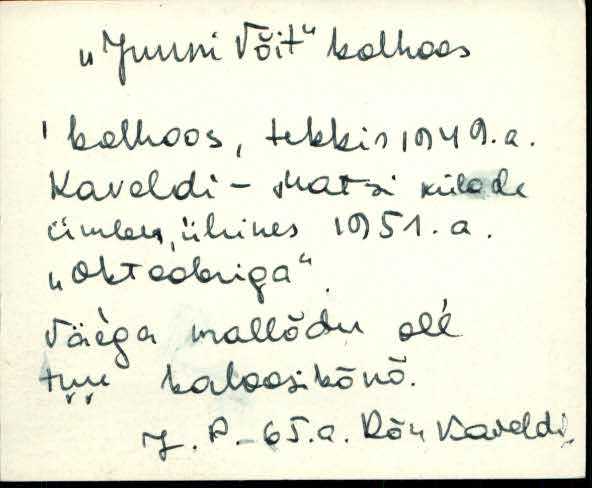 „Juuni Võit" kolhoos
' kolhoos, tekkis 1949.a.
Kaveldi - Matsi külade
ümber, ühines 1951.a.
„Oktoobriga".
Väega mallõdu olĺ
tuu kaloosikõnõ.
J. P. 65.a. Rõu Kaveldi